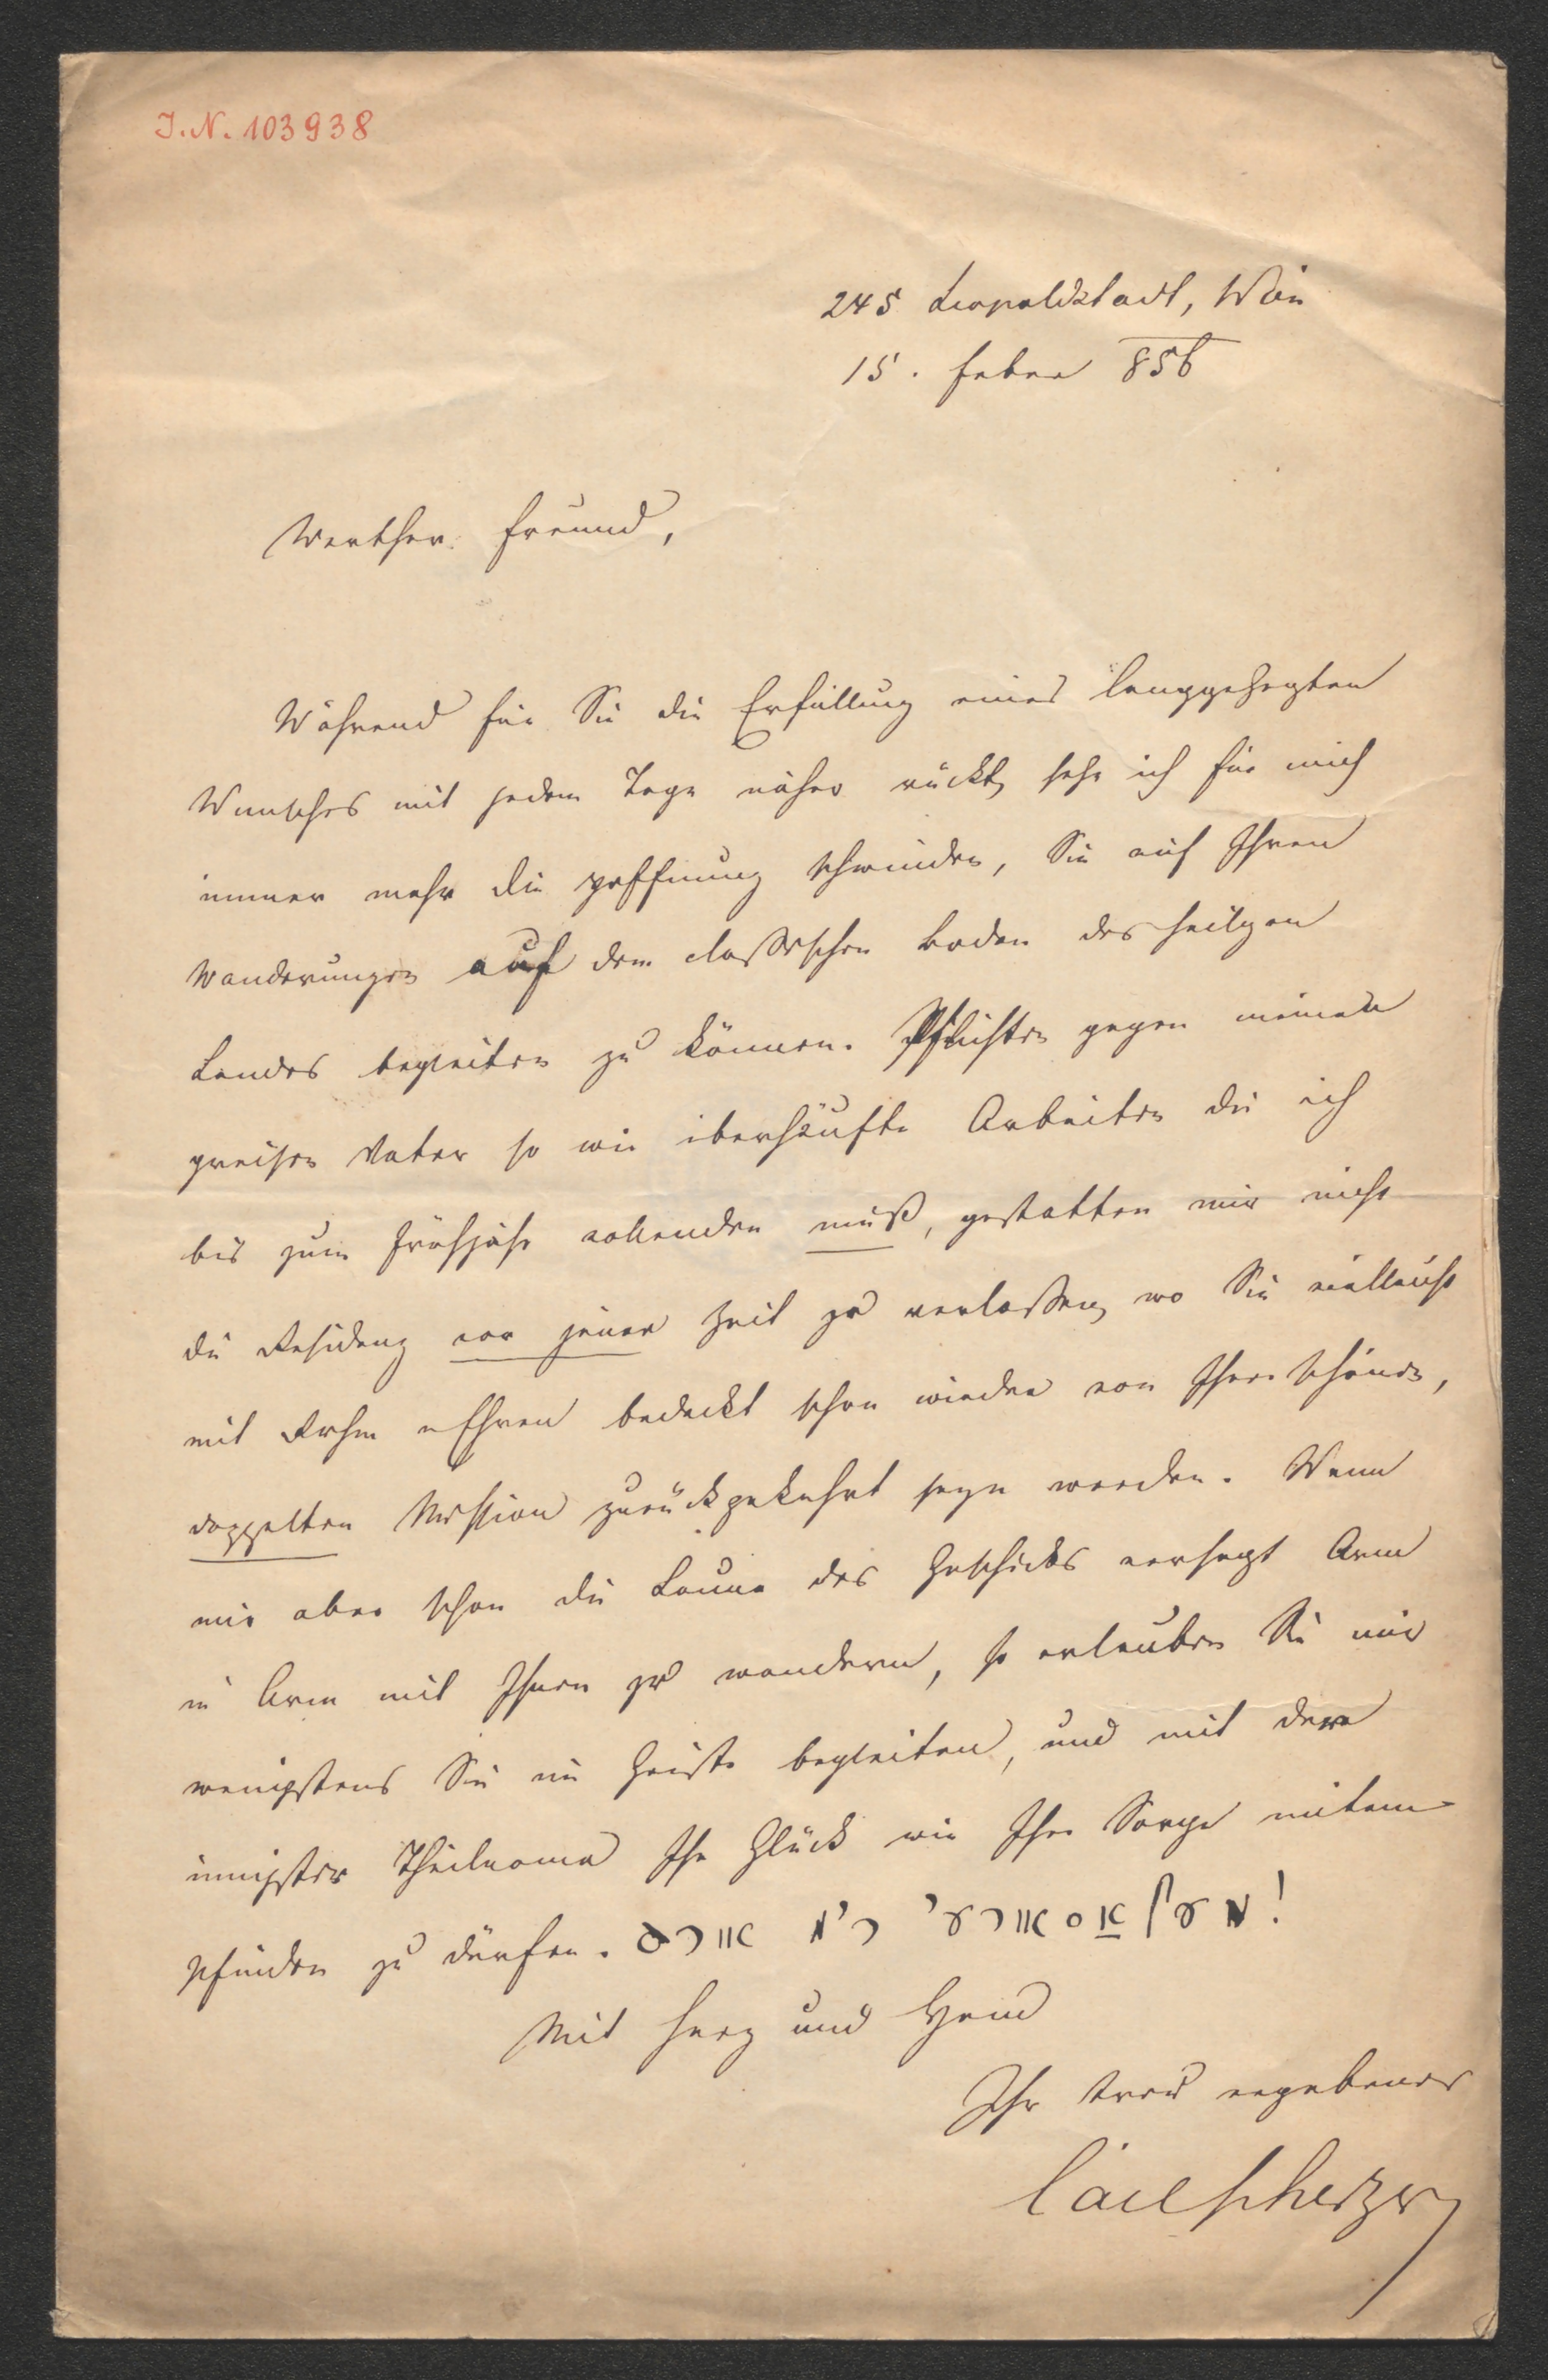 I.N. 103938
245 Leopoldstadt, Wien
15. Feber 856
Werther Freund,
Während für Sie die Erfüllung eines langgehegten
Wunsches mit jedem Tage näher rückt, sehe ich für mich
immer mehr die Hoffnung schwinden, Sie auf Ihren
Wanderungen auf dem classischen Boden des heiligen
Landes begleiten zu können. Pflichten gegen meinen
greisen Vater so wie überhäufte Arbeiten die ich
bis zum Frühjahr vollenden muß, gestatten mir nicht
die Residenz vor jener Zeit zu verlassen, wo Sie vielleicht
mit Ruhm u Ehren bedeckt schon wieder von Ihrer schönen,
doppelten Mission zurückgekehrt seyn werden. Wenn
mir aber schon die Laune des Geschicks versagt Arm
in Arm mit Ihnen zu wandern, so erlauben Sie mir
wenigstens Sie im Geiste begleiten, und mit der
innigsten Theilname Ihr Glück wie Ihre Sorge mitem-
pfinden zu dürfen.
Mit Herz und Hand
Ihr treu ergebener
Carl Scherzer